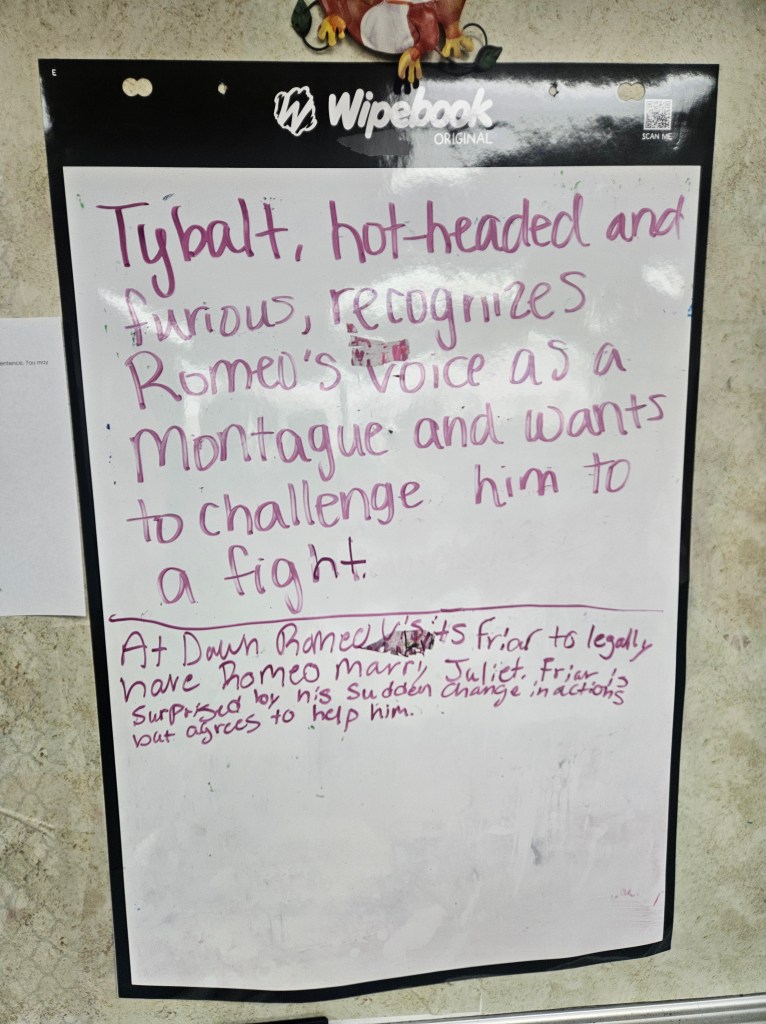 E
Wipebook
ORIGINAL
SCAN ME
Tybalt, hot-headed and
furious, recognizes
Romeo's voice as a
Montague and wants
to challenge him to
a fight.
entence. You may
At Dawn Romeo visits friar to legally
have Romeo marry Juliet. Friar is
surprised by his sudden change in actions
but agrees to help him.